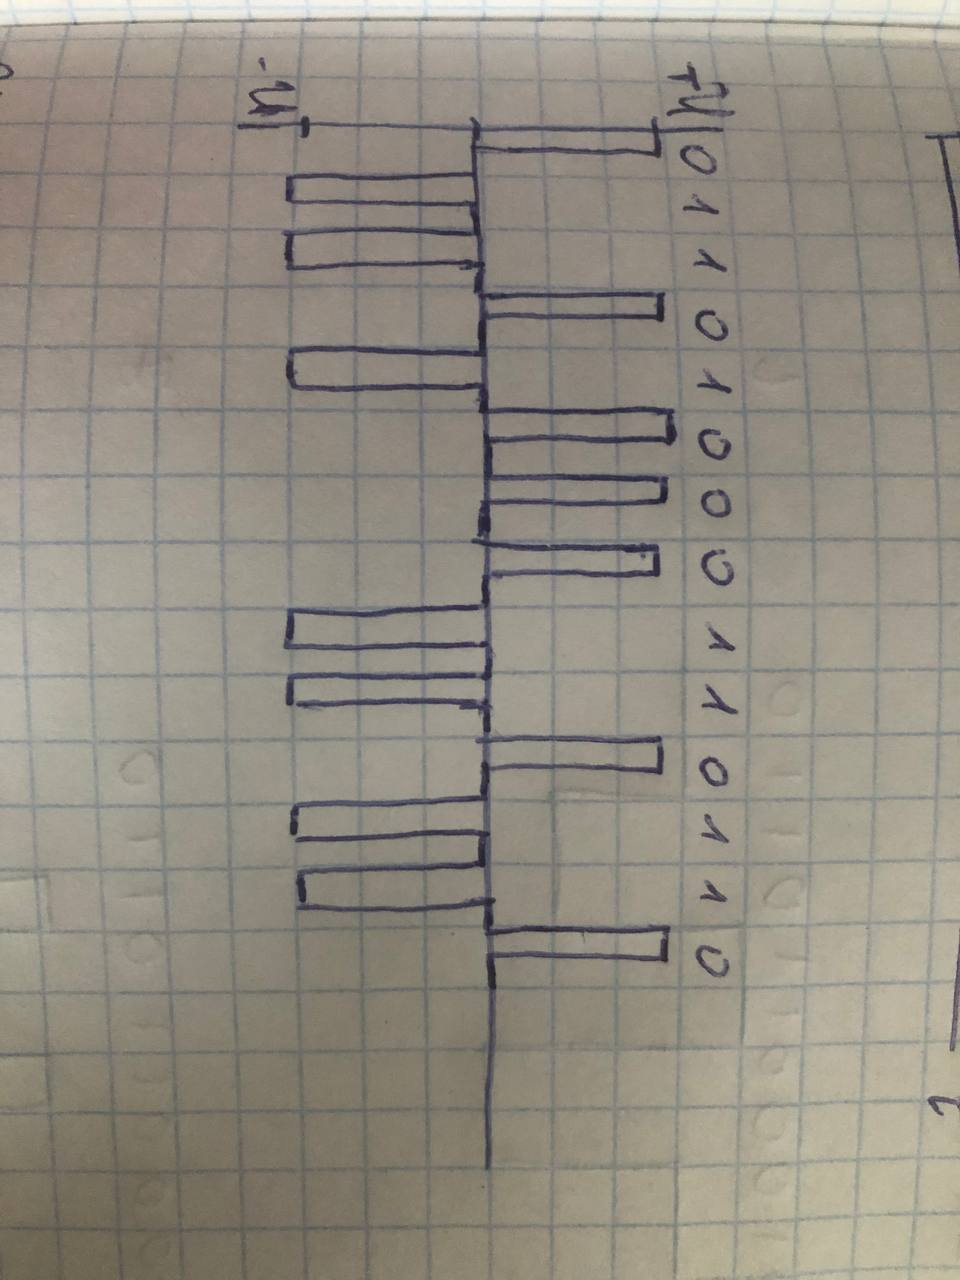 +U
0 1 1 0 1 0 0 0 1 1 0 1 1 0
-U